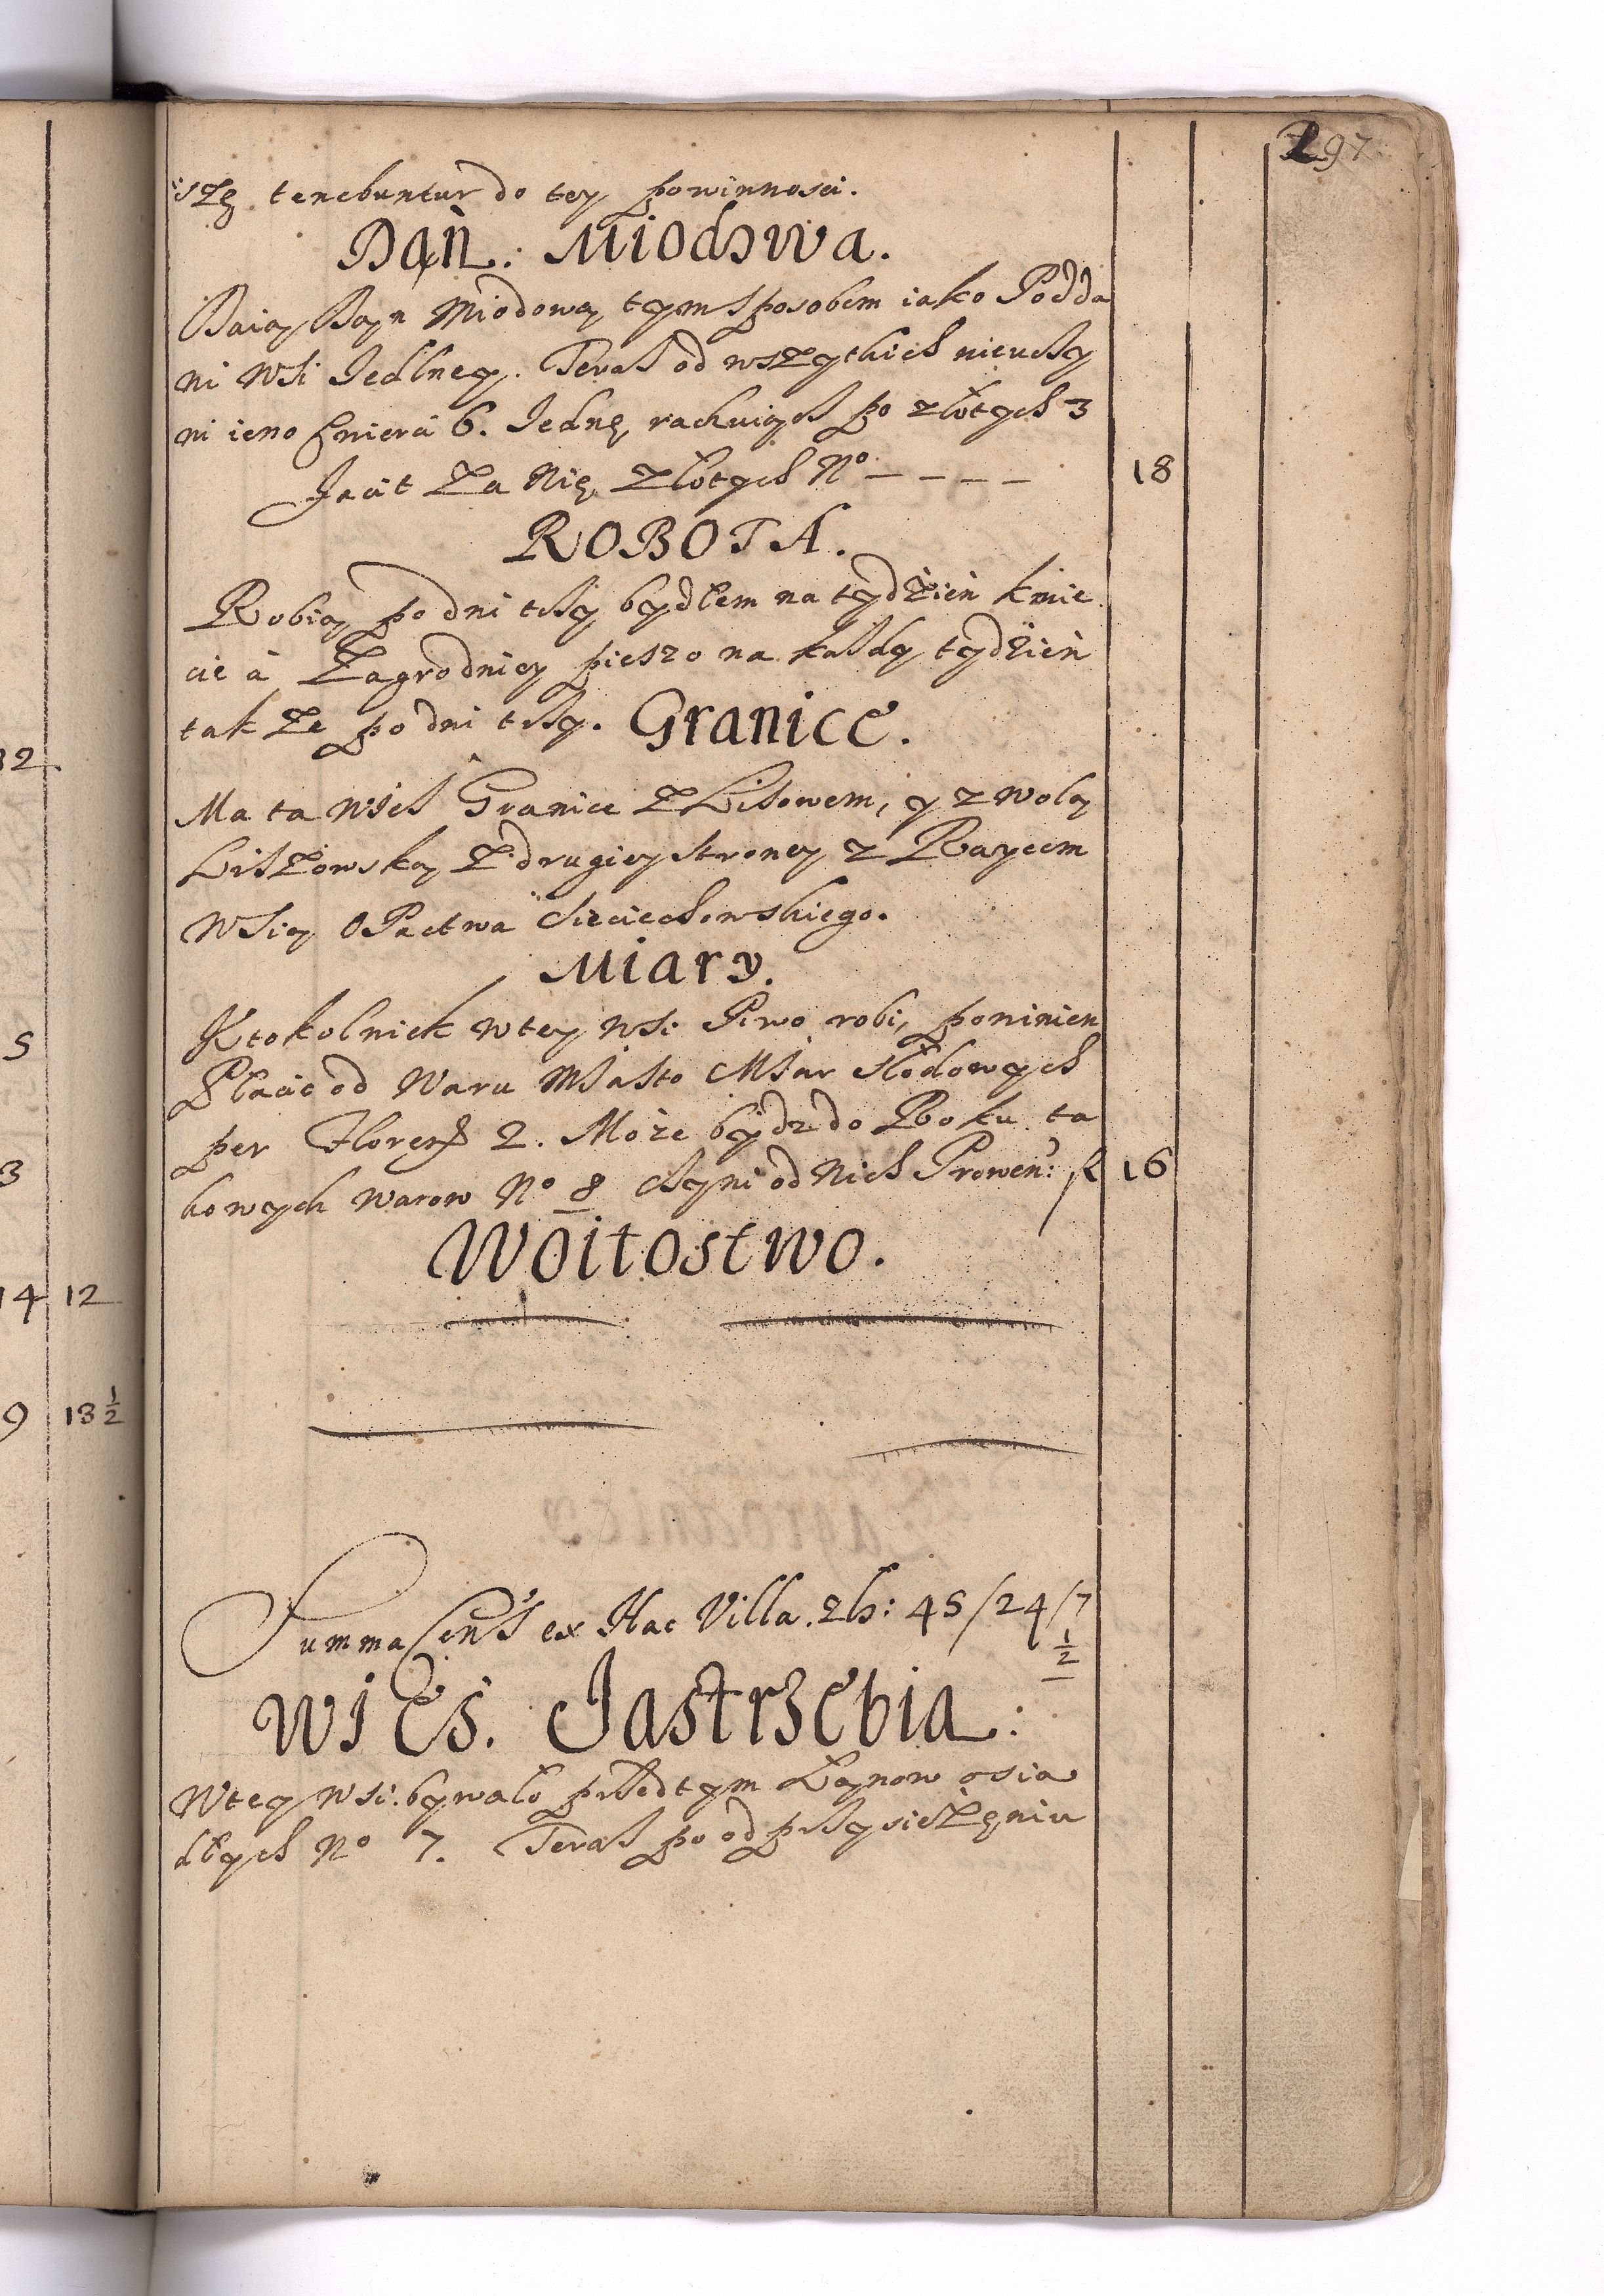 297
iszę tenebuntur do tey powinnosci.
Dań: Miodowa.
Daią Dań Miodową tym sposobem iako Podda
ni wsi Jedlney. Teras od wszytkich nieuczy
ni ieno ćwierci 6. Jednę rachuiąc po złotych 3
Facit Za Nię złotych No – – – – 18
ROBOTA.
Robią po dni trzy bydłem na tydzień kmie
cie à Zagrodnicy pieszo na każdy tydzień
takze po dni trzy. Granice.
Ma ta wieś Granice z Lisowem, y z wolą
Liszowską z drugiey strony z Raycem
wsią OPactwa Sieciechowskiego.
Miary.
Ktokolniek w tey wsi Piwo robi, powinien
Płacić od Waru Miasto Miar słodowych
per Floren 2. Może bydz do Roku ta
kowych warow No 8 czyni od Nich Prowen: fl 16
Woitostwo.
Summa Cens ex Hac Villa. 45/24/7
1/2
wies. Jastrzebia:
W tey wsi bywało przedtym Łanow osia
dłych No 7. Teras po odprzysiężeniu
32
5
3
14 12
9 13 1/2